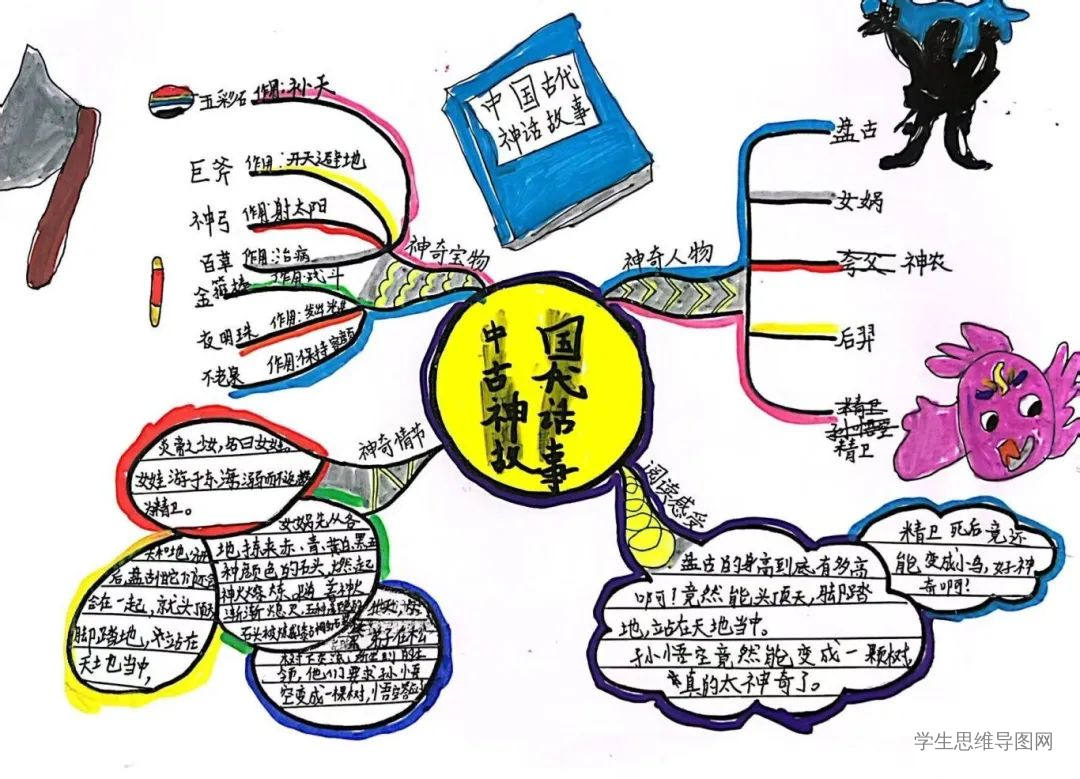 中国古代
神话故事
中国
古代
神话
故事
神奇宝物
五彩石 作用:补天
巨斧 作用:开天辟地
神弓 作用:射太阳
百草 作用:治病
金箍棒 作用:战斗
夜明珠 作用:发出光
不老泉 作用:保持容颜
神奇人物
盘古
女娲
夸父 神农
后羿
精卫
孙悟空
精卫
神奇情节
炎帝之少女,名曰女娃。
女娃游于东海,溺而不返,故
为精卫。
天和地分
后,盘古怕它们还会
合在一起,就头顶
脚踏地,站在
天地当中,
女娲先从各
地拣来赤、青、黄、白、黑五
种颜色的石头,燃起
神火
渐渐熄灭,五种
石头被
弟子在松
树下
领,他们要求孙悟
空变成一棵树,悟空答应
阅读感受
盘古的身高到底有多高
啊!竟然能头顶天,脚踏
地,站在天地当中。
孙悟空竟然能变成一颗树,
真的太神奇了。
精卫死后竟还
能变成小鸟,好神
奇啊!
学生思维导图网